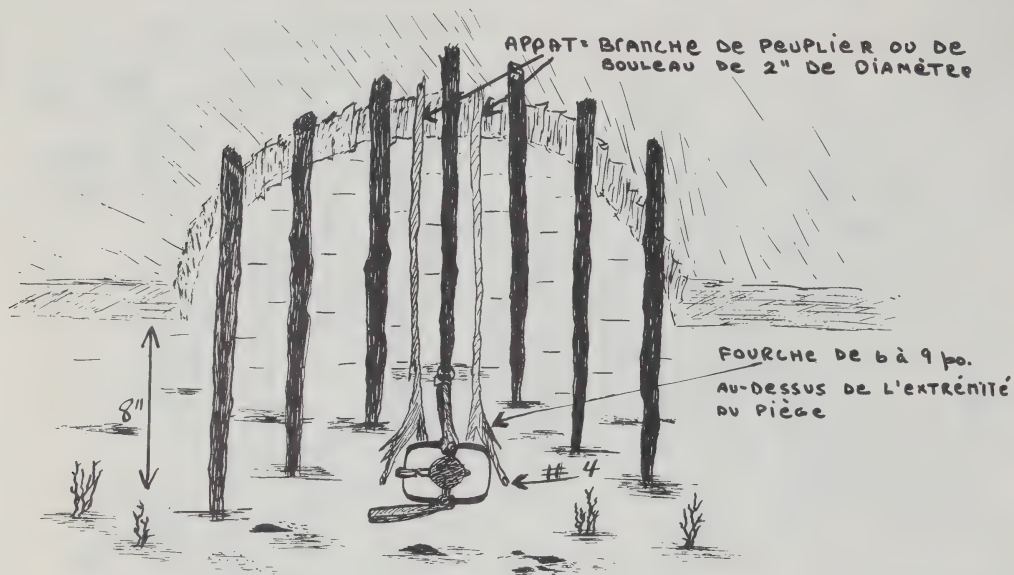 APPÂT= BRANCHE DE PEUPLIER OU DE
BOULEAU DE 2" DE DIAMÈTRE
FOURCHE DE 6 à 9 po.
AU-DESSUS DE L'EXTRÉMITÉ
DU PIÈGE
8"
# 4